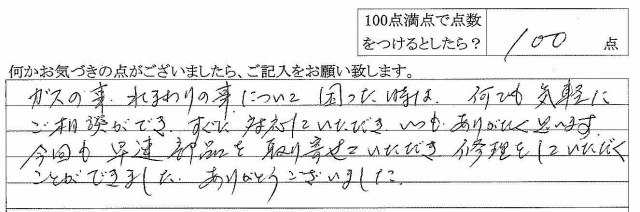 100点満点で点数
をつけるとしたら？
100 点
何かお気づきの点がございましたら、ご記入をお願い致します。
ガスの事、水まわりの事について困った時は、何でも気軽に
ご相談ができ、すぐに対応していただき、いつもありがたく思います。
今回も早速部品を取り寄せていただき修理をしていただく
ことができました。ありがとうございました。